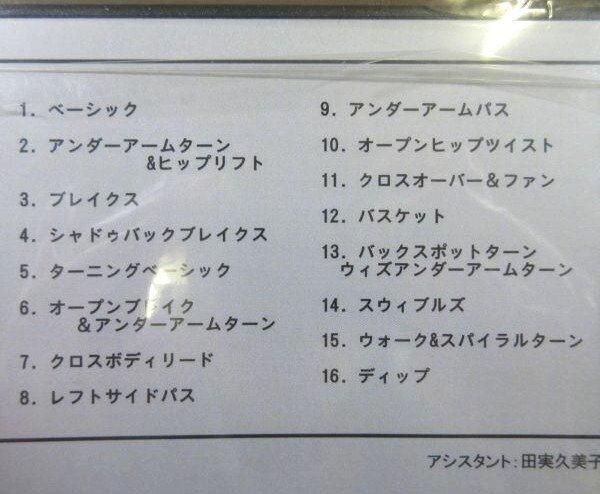 1. ベーシック
2. アンダーアームターン
&ヒップリフト
3. ブレイクス
4. シャドゥバックブレイクス
5. ターニングベーシック
6. オープンブレイク
&アンダーアームターン
7. クロスボディリード
8. レフトサイドパス
9. アンダーアームパス
10. オープンヒップツイスト
11. クロスオーバー&ファン
12. バスケット
13. バックスポットターン
ウィズアンダーアームターン
14. スウィブルズ
15. ウォーク&スパイラルターン
16. ディップ
アシスタント:田実久美子